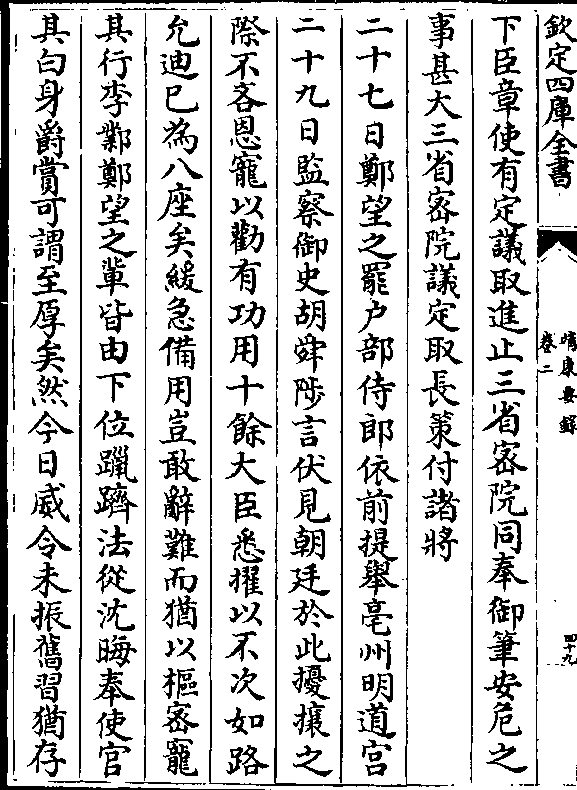 欽定四庫全書
靖康要錄
卷二
四十九
下臣章使有定議取進止三省宻院同奉御筆安危之
事甚大三省宻院議定取長策付諸將
二十七日鄭望之罷户部侍郎依前提舉亳州明道宫
二十九日監察御史胡舜陟言伏見朝廷於此擾攘之
際不吝恩寵以勸有功用十餘大臣悉擢以不次如路
允迪已為八座矣緩急備用豈敢辭難而猶以樞宻寵
其行李鄴鄭望之輩皆由下位躐躋法從沈晦奉使官
其白身爵賞可謂至厚矣然今日威令未振舊習猶存